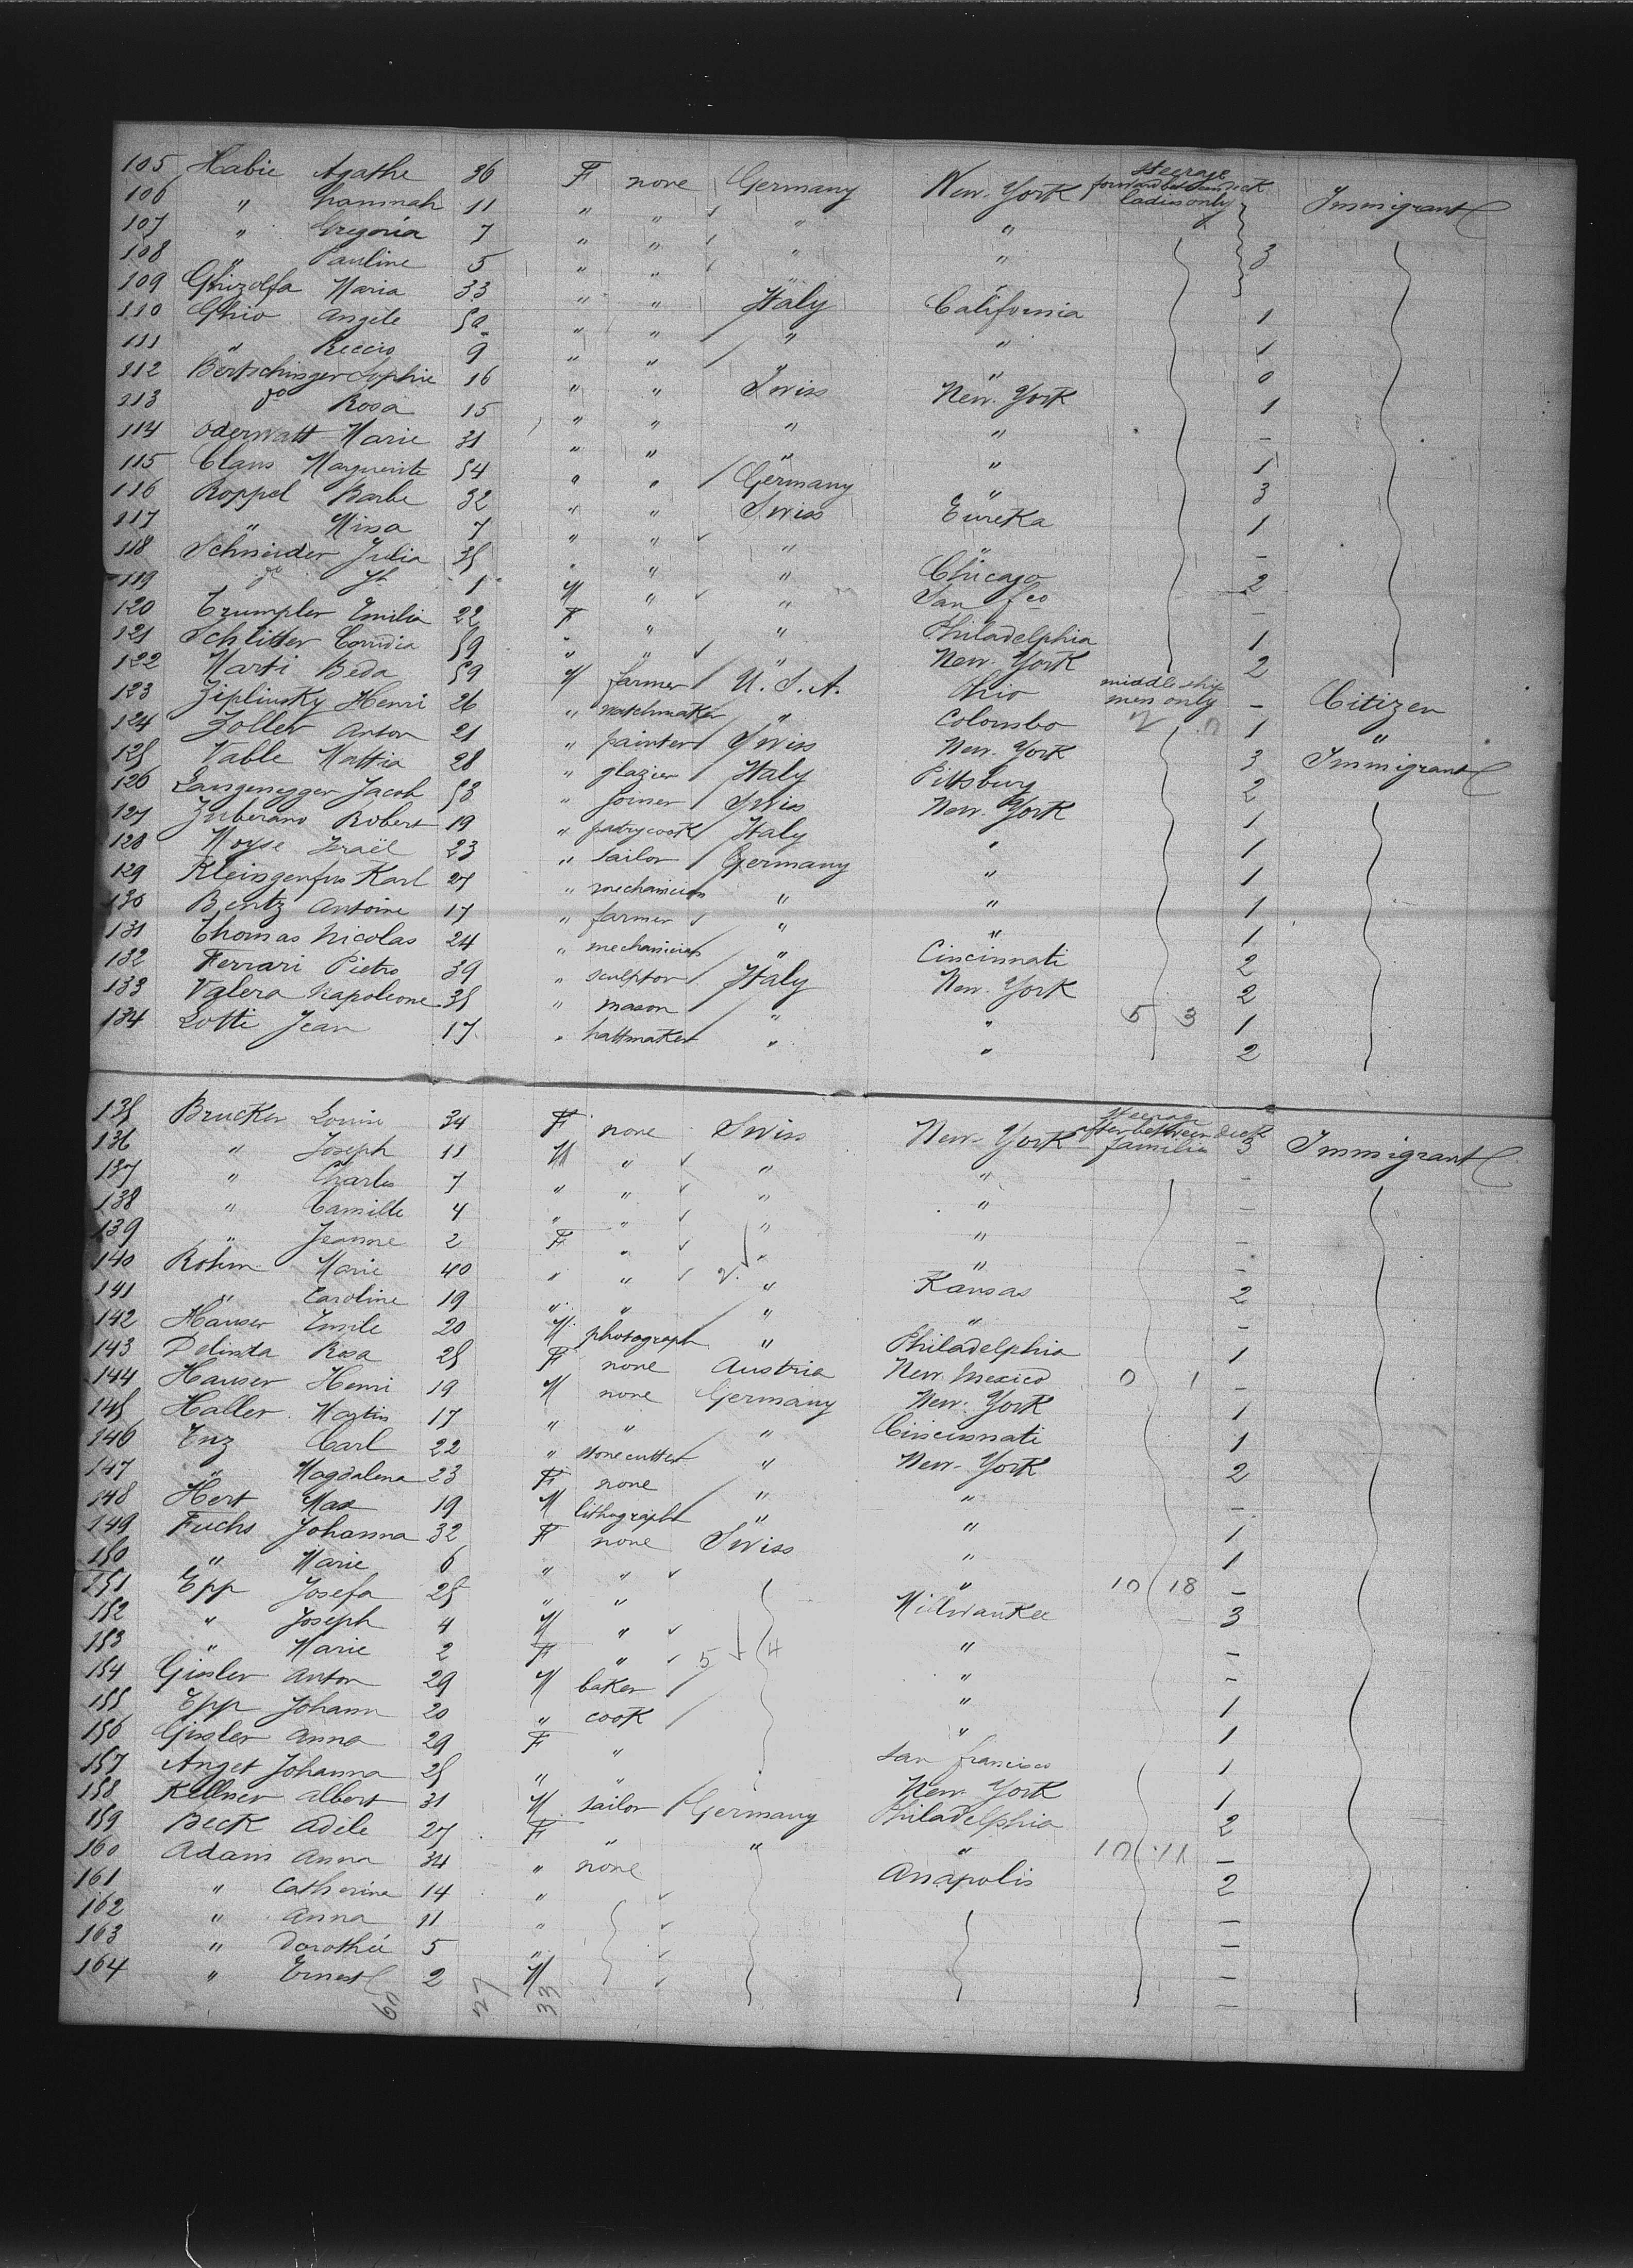 105 Habie Agathe 36 F none Germany New-York steerage forward between deck ladies only Immigrant
106 " Hammah 11 " " " "
107 " Gregoria 7 " " " " 3
108 " Pauline 5 " " " "
109 Ghizolfa Maria 33 " " Italy California 1
110 Ghio Angele 50 " " " " 1
111 " Reccio 9 " " " " 0
112 Bertschinger Sophie 16 " " Swiss New-York 1
113 do Rosa 15 " " " " -
114 Oderwatt Marie 31 " " " " 1
115 Claus Marguerite 54 " " Germany " 3
116 Roppel Barbe 32 " " Swiss Eureka 1
117 " Mina 7 " " " " -
118 Schneider Julia 35 " " " Chicago 2
119 do Jh 1 M " " San fco -
120 Trumpler Emilia 22 F " " Philadelphia 1
121 Schlitter 59 " " " New-York 2
122 Marti Beda 59 M farmer U.S.A. Ohio middle ship men only - Citizen
123 Ziplinsky Henri 26 " watchmaker " Colombo 1 "
124 Zoller Anton 21 " painter Swiss New-York 3 Immigrant
125 Valle Mattia 28 " glazier Italy Pittsburg 2
126 Langenegger Jacob 53 " joiner Swiss New-York 1
127 Zuberano Robert 19 " pastrycook Italy " 1
128 Moyse Israël 23 " tailor Germany " 1
129 Kleingenfus Karl 27 " mechanician " " 1
130 Bentz Antoine 17 " farmer " " 1
131 Thomas Nicolas 24 " mechanician " Cincinnati 2
132 Ferrari Pietro 39 " sculptor Italy New-York 2
133 Valera Napoleone 35 " mason " " 5 3 1
134 Lotti Jean 17 " hattmaker " " 2
135 Brucker Louise 34 F none Swiss New-York steerage after between deck families 3 Immigrant
136 " Joseph 11 M " " " -
137 " Charles 7 " " " " -
138 " Camille 4 " " " " -
139 " Jeanne 2 F " " " -
140 Rohm Marie 40 " " " Kansas 2
141 " Caroline 19 " " " " -
142 Hauser Emile 20 M photograph " Philadelphia 1
143 Delinda Rosa 25 F none Austria New Mexico 0 1 -
144 Hauser Henri 19 M none Germany New-York 1
145 Haller Martin 17 " " " Cincinnati 1
146 Enz Carl 22 " stonecutter " New-York 2
147 " Magdalena 23 F none " " -
148 Hert Max 19 M lithograph " " 1
149 Fuchs Johanna 32 F none Swiss " 1
150 " Marie 6 " " " 10 18 -
151 Epp Josefa 25 " " Milwaukee 3
152 " Joseph 4 M " " -
153 " Marie 2 F " 5 4 " -
154 Gisler Anton 29 M baker " 1
155 Epp Johann 20 " cook " 1
156 Gisler Anna 29 F " San francisco 1
157 Anget Johanna 25 " " New-York 1
158 Kellner Albert 31 M tailor Germany Philadelphia 2
159 Beck Adele 27 F " " " 10 11 -
160 Adam Anna 34 " none Anapolis 2
161 " Catherine 14 " -
162 " Anna 11 " -
163 " Dorothée 5 " -
164 " Ernest 2 M -
60 27 33